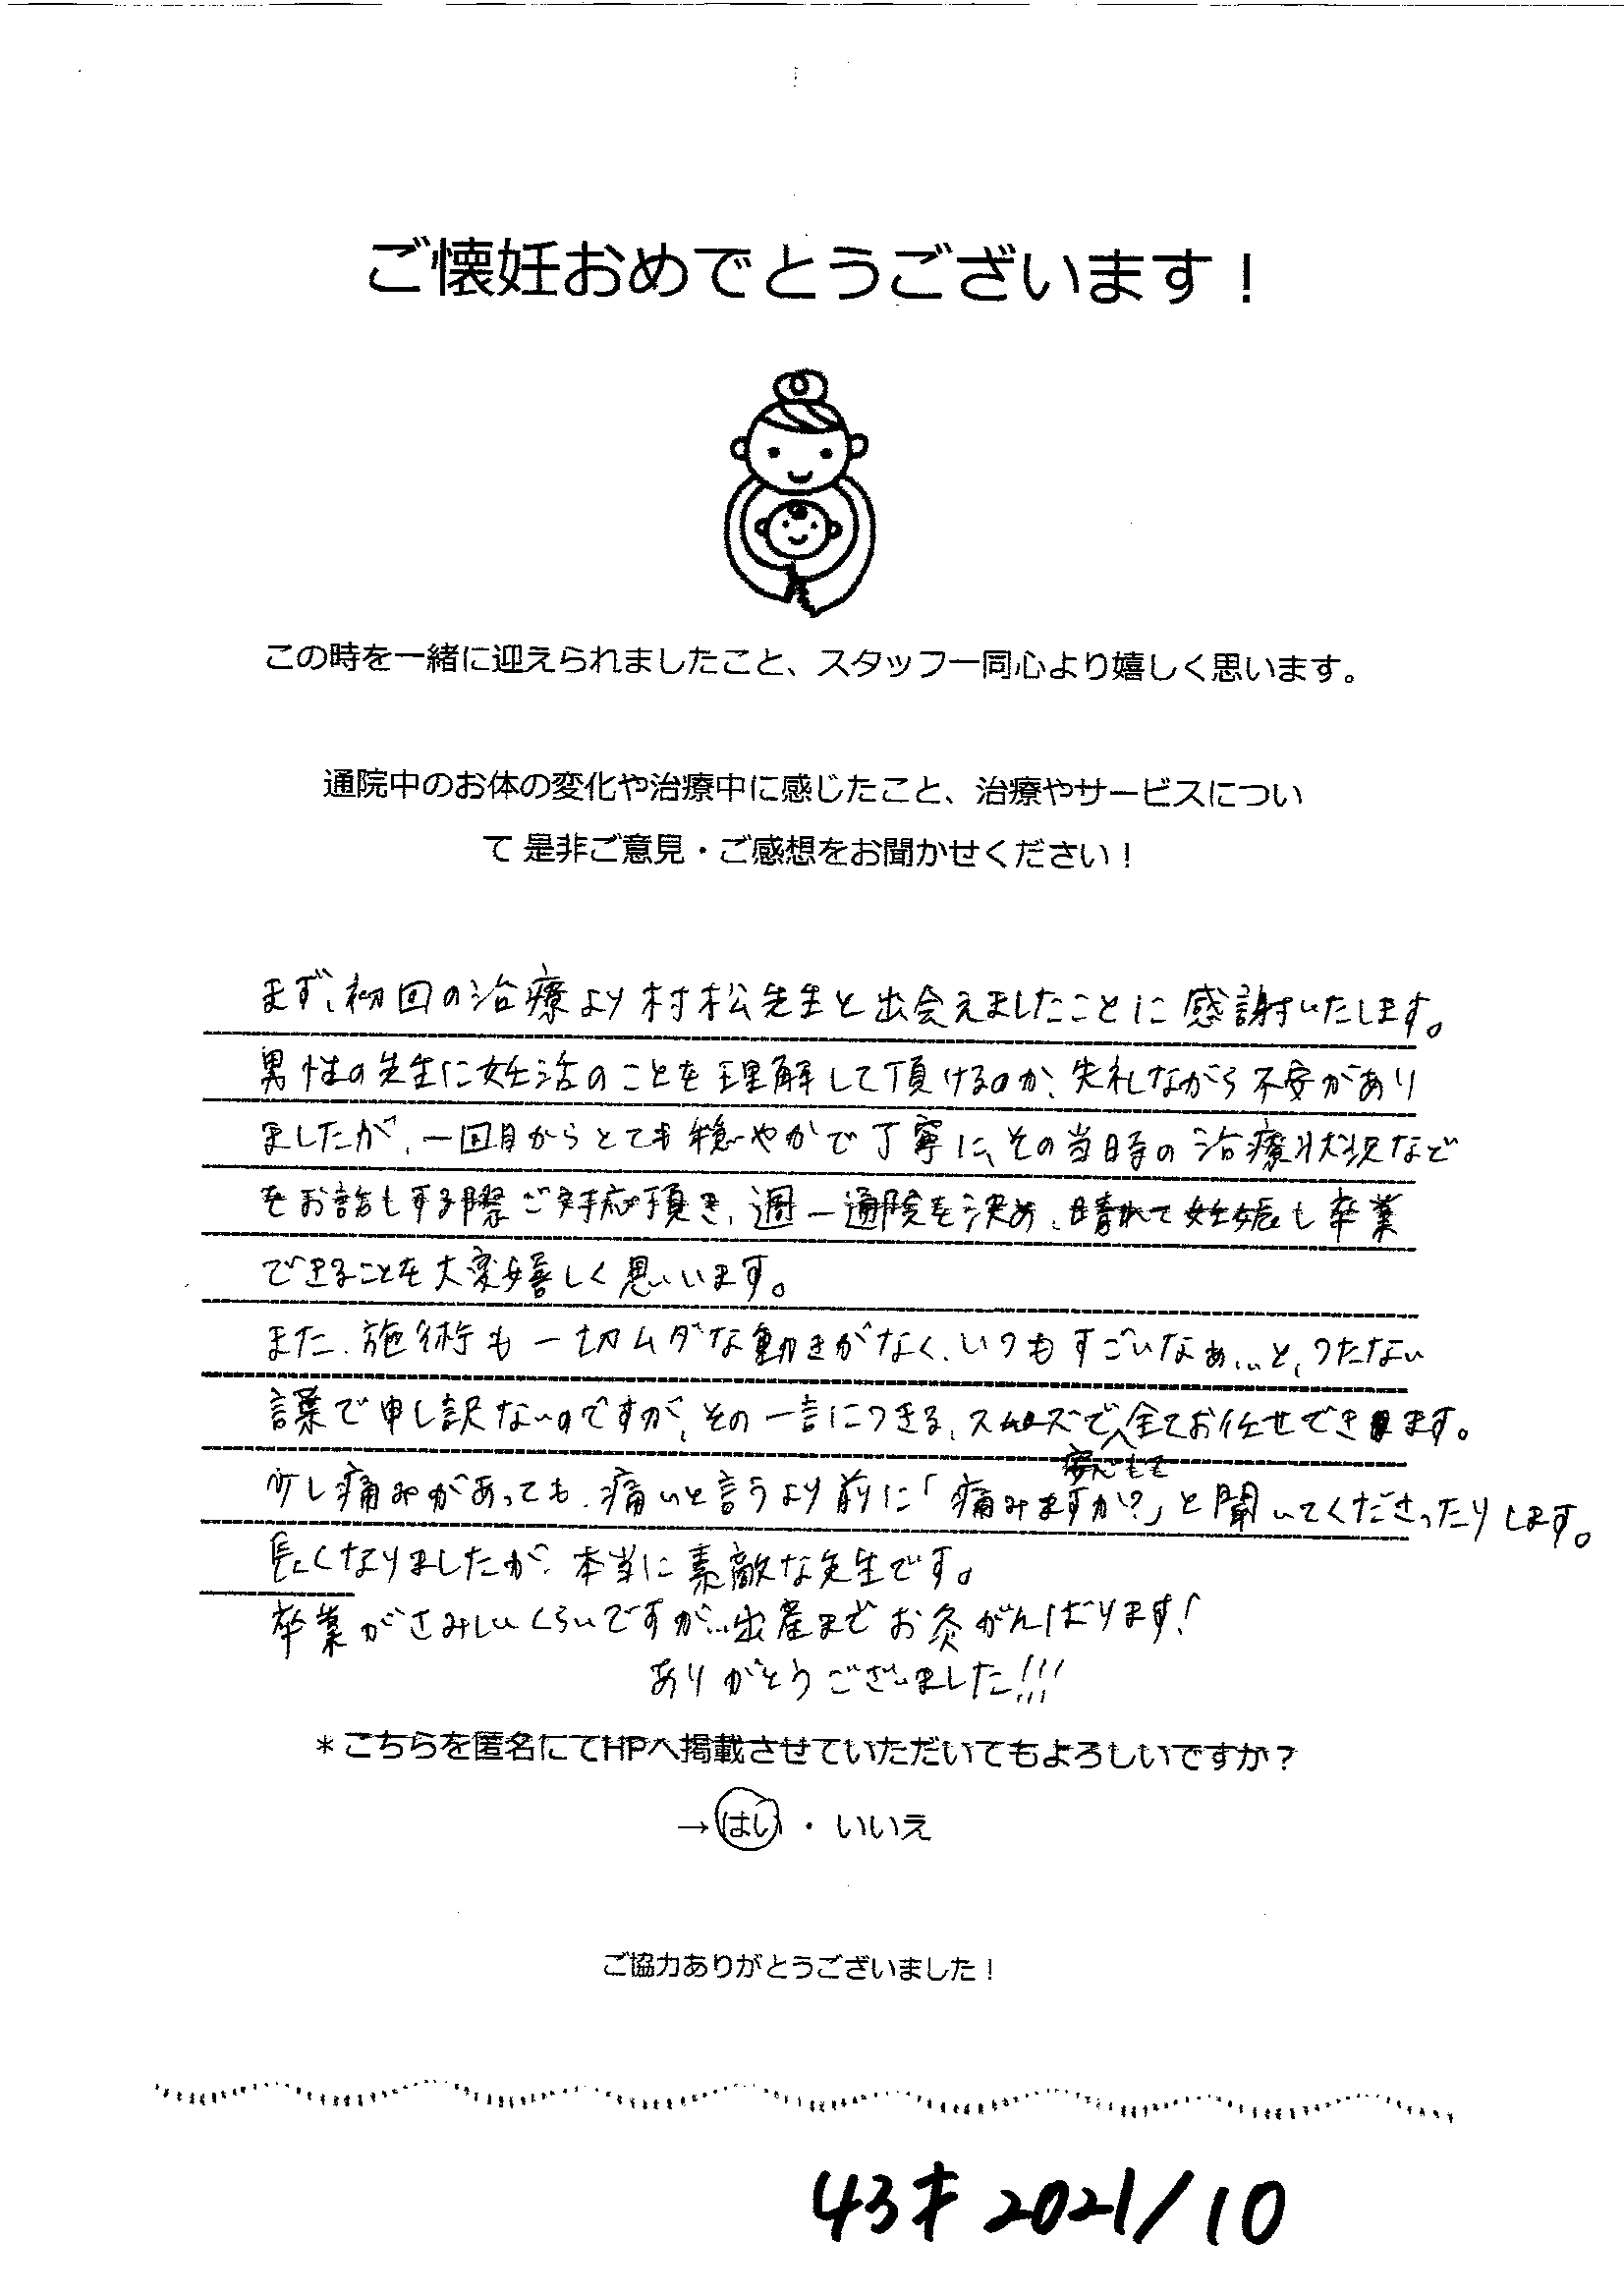 ご懐妊おめでとうございます！
この時を一緒に迎えられましたこと、スタッフ一同心より嬉しく思います。
通院中のお体の変化や治療中に感じたこと、治療やサービスについ
て 是非ご意見・ご感想をお聞かせください！
まず、初回の治療より村松先生と出会えましたことに感謝いたします。
男性の先生に妊活のことを理解して頂けるのか、失礼ながら不安があり
ましたが、一回目からとても穏やかで丁寧に、その当時の治療状況など
をお話しする際ご対応頂き、週一通院を決め、晴れて妊娠し卒業
できることを大変嬉しく思います。
また、施術も一切ムダな動きがなく、いつもすごいなぁ...と、つたない
言葉で申し訳ないのですが、その一言につきる、スムーズで全てお任せできます。
安心して
少し痛みがあっても、痛いと言うより前に「痛みますか?」と聞いてくださったりします。
長くなりましたが、本当に素敵な先生です。
卒業がさみしいくらいですが...出産までお灸がんばります!
ありがとうございました!!!
＊こちらを匿名にてHPへ掲載させていただいてもよろしいですか？
→はい ・ いいえ
ご協力ありがとうございました！
43才 2021/10